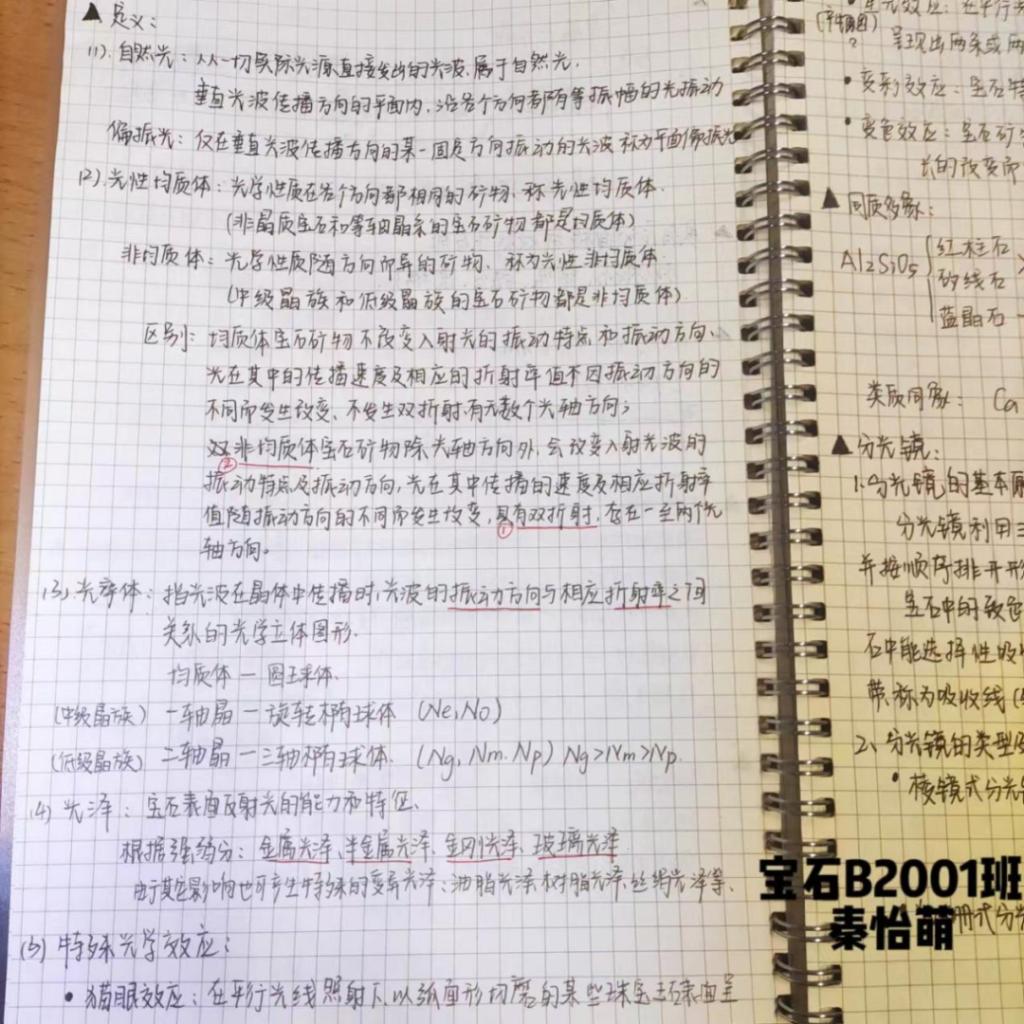 ▲定义：
(1).自然光：从一切实际光源直接发出的光波,属于自然光.
垂直光波传播方向的平面内,沿各个方向都有等振幅的光振动
偏振光：仅在垂直光波传播方向的某一固定方向振动的光波称为平面偏振光
(2).光性均质体：光学性质在各个方向都相同的矿物、称光性均质体.
(非晶质宝石和等轴晶系的宝石矿物都是均质体)
非均质体：光学性质随方向而异的矿物、称为光性非均质体
(中级晶族和低级晶族的宝石矿物都是非均质体)
区别：均质体宝石矿物不改变入射光的振动特点和振动方向、
光在其中的传播速度及相应的折射率值不因振动方向的
不同而发生改变、不发生双折射,有无数个光轴方向；
非均质体宝石矿物除光轴方向外,会改变入射光波的
②
振动特点及振动方向,光在其中传播的速度及相应折射率
值随振动方向的不同而发生改变,具有双折射,存在一至两个光
①
轴方向。
(3).光率体：指光波在晶体中传播时,光波的振动方向与相应折射率之间
关系的光学立体图形.
均质体一圆球体.
(中级晶族)一轴晶一旋转椭球体 (Ne,No)
(低级晶族)二轴晶一三轴椭球体. (Ng,Nm.Np) Ng>Nm>Np.
(4)光泽：宝石表面反射光的能力和特征、
根据强弱分：金属光泽、半金属光泽、金刚光泽、玻璃光泽
影响也可产生特殊的变异光泽：油脂光泽,树脂光泽,丝绢光泽等、
(5)特殊光学效应：
•猫眼效应：在平行光线照射下,以弧面形切磨的某些珠宝玉石表面呈
呈现出两条或两
•变彩效应：宝石特
•变色效应：宝石矿
长的改变而
▲同质多象：
Al2SiO5 红柱石
矽线石
蓝晶石
类质同象：Ca
▲分光镜：
1.分光镜的基本原
分光镜利用三
并按顺序排开形
宝石中的致色
石中能选择性吸收
带.称为吸收线(
2、分光镜的类型及
•棱镜式分光镜
宝石B2001班
秦怡萌
式分光